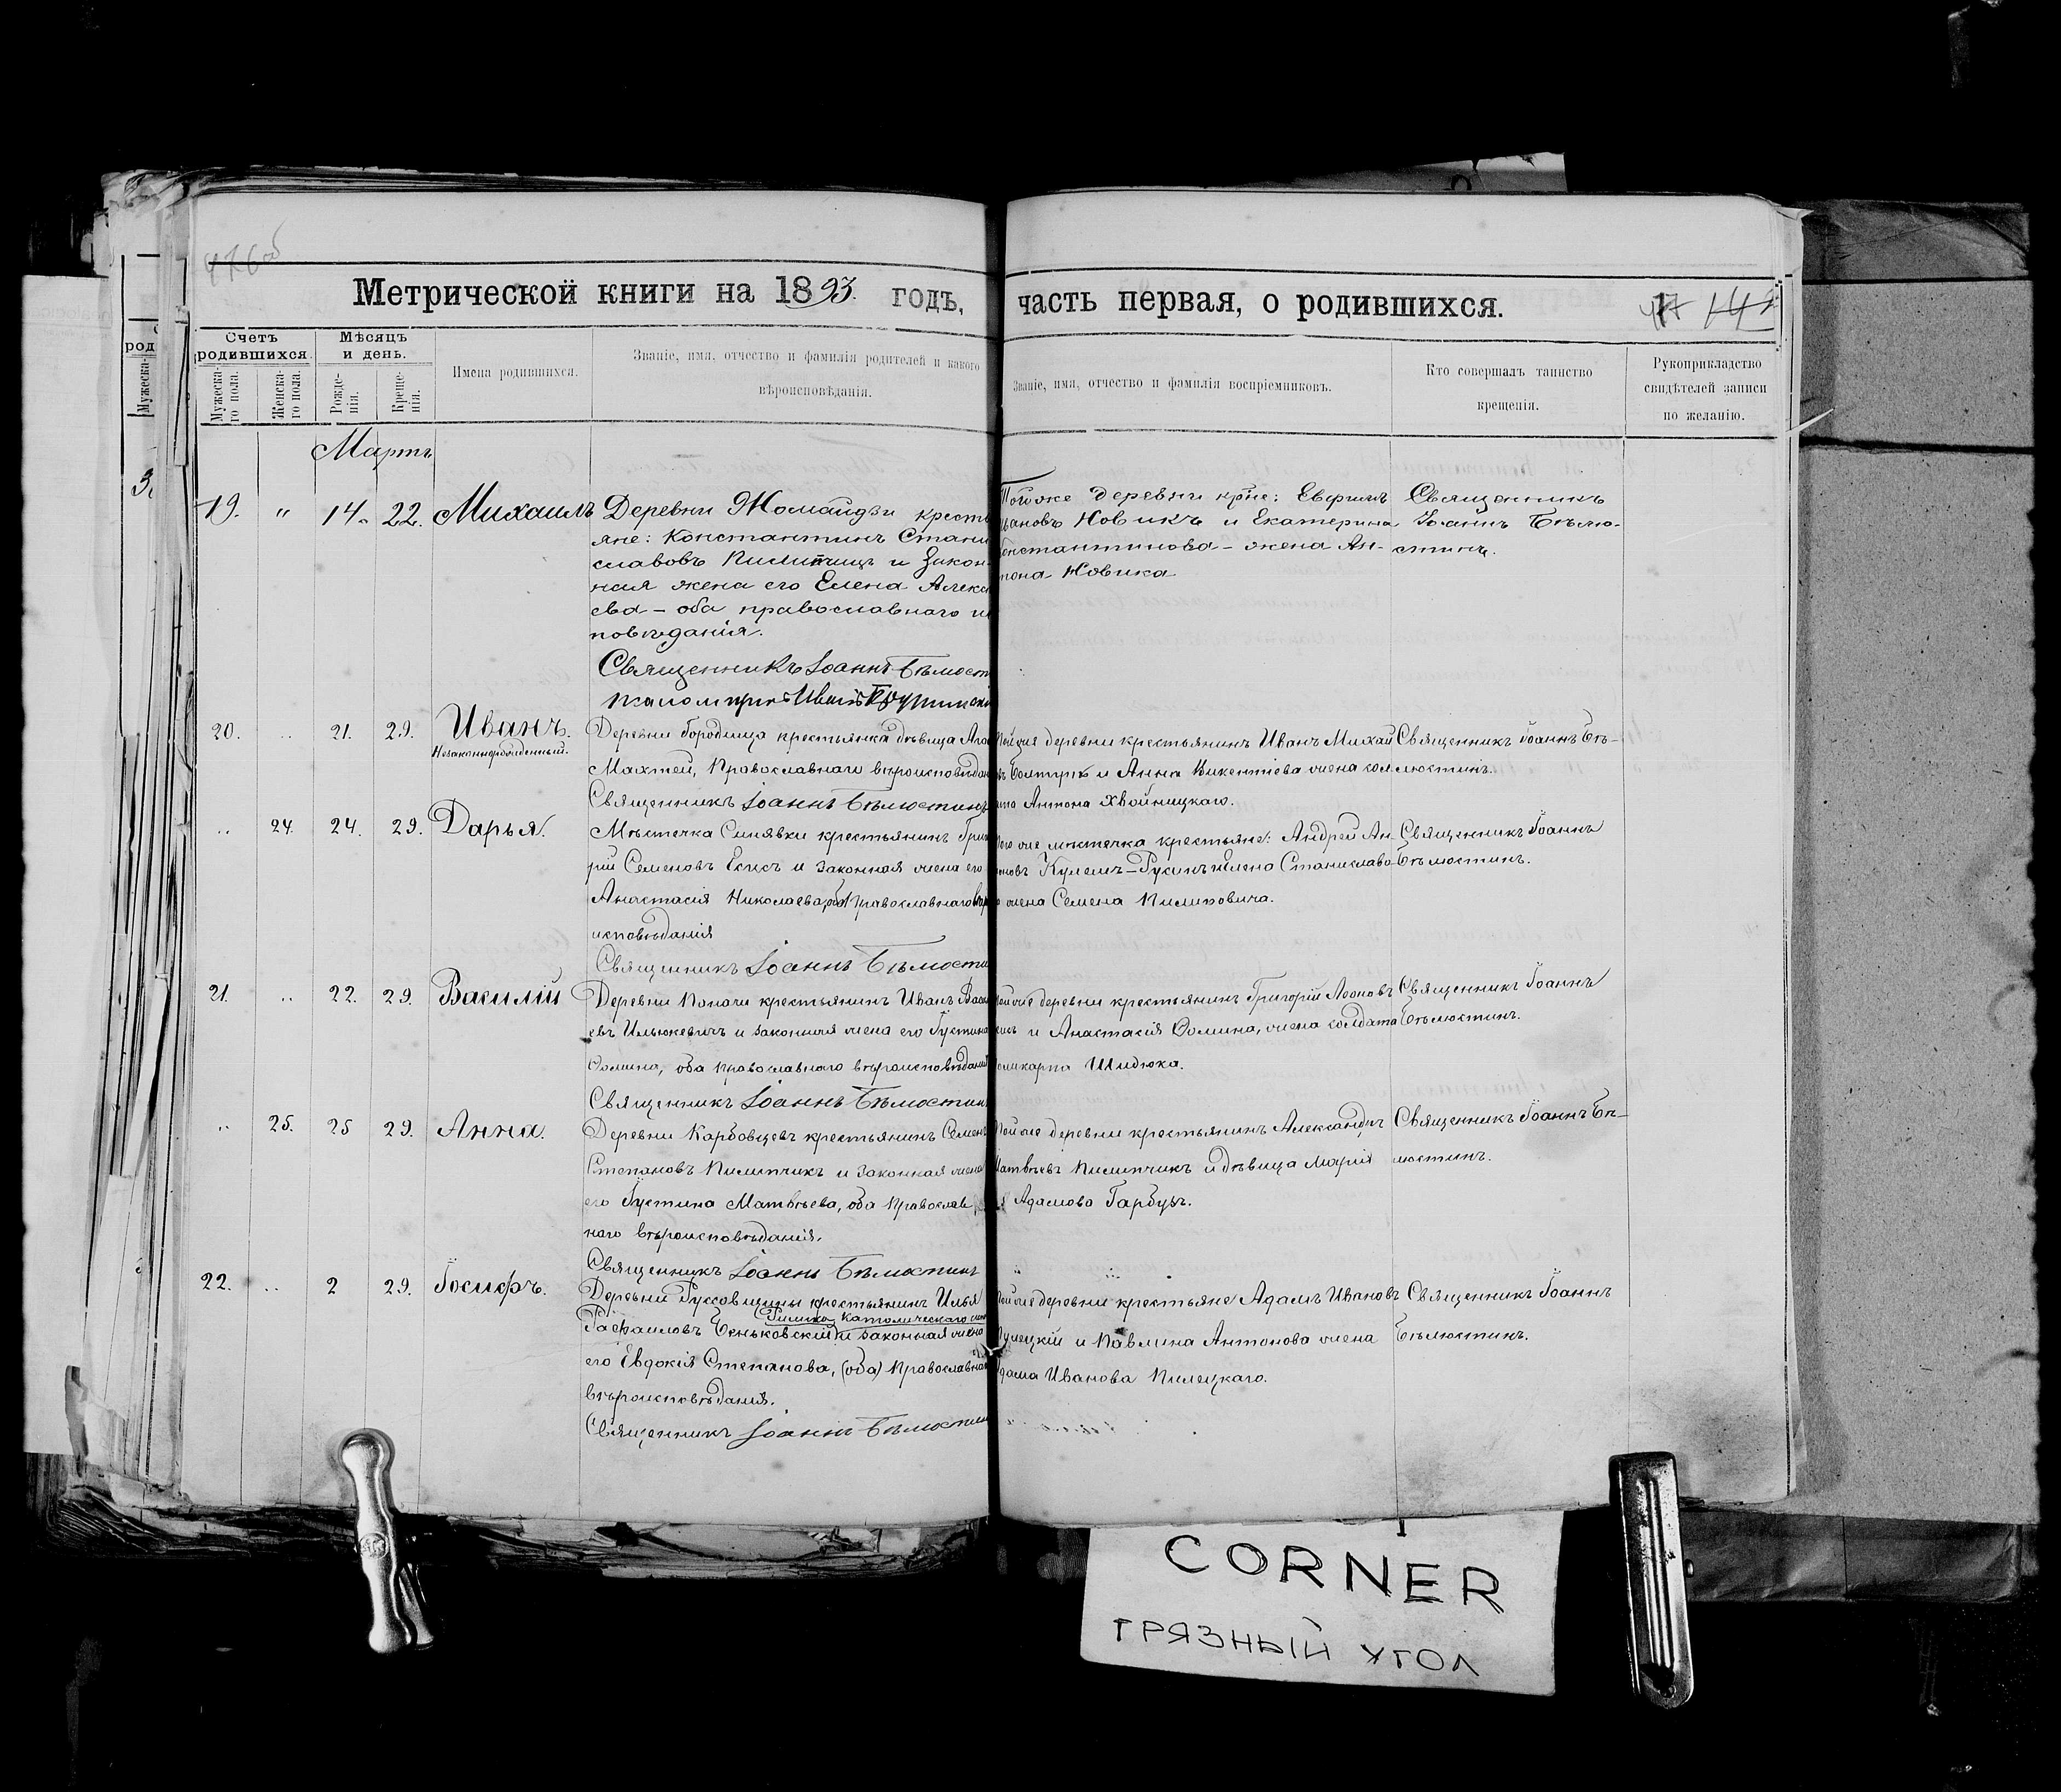 Метрической книги на 1893. годъ,
часть первая, о родившихся.
Счетъ родившихся.
Мужеска-го пола.
Женска-го пола.
Мѣсяцъ и день.
Рожде-нія.
Креще-нія.
Имена родившихся.
Званіе, имя, отчество и фамилія родителей и какого
вѣроисповѣданія.
Званіе, имя, отчество и фамилія воспріемниковъ.
Кто совершалъ таинство
крещенія.
Рукоприкладство
свидѣтелей записи
по желанію.
Мартъ
19. " 14. 22. Михаилъ
Деревни Жомайдзи кресть
яне: Константинъ Стани
славовъ Пилипчицъ и закон-
ная жена его Елена Алекс
ева - оба православнаго и
повѣданія.
Священникъ Іоаннъ Бѣлюст
Тойже деревни кр̃не: Евфимъ
вановъ Новикъ и Екатерина
онстантинова - жена Ан-
тона Новика
Священникъ
Іоаннъ Бѣлю-
стинъ.
20. .. 21. 29. Иванъ.
Незаконнорожденный.
Деревни Бородища крестьянка дѣвица Ага
Махтей, Православнаго вѣроисповѣдан
Священникъ Іоаннъ Бѣлюстинъ
Тойже деревни крестьянинъ Иванъ Михай
и Анна Викентіева жена сол
Антона Хвойницкаго.
Священникъ Іоаннъ Бѣ-
люстинъ.
.. 24. 24. 29. Дарья.
Мѣстечка Синявки крестьянинъ Григ
рій Семеновъ и законная жена его
Анастасія Николаева, оба Православнаго вѣр
исповѣданія
Священникъ Іоаннъ Бѣлюсти
ого же мѣстечка крестьяне: Андрей Ан-
оновъ Кулешъ-Русинъ и Елена Станиславо
жена Семена Пилиповича.
Священникъ Іоаннъ
Бѣлюстинъ.
21. .. 22. 29. Василій
Деревни крестьянинъ Иванъ Васи
евъ Ильюкевичъ и законная жена его Іустина
Ѳомина, оба Православнаго вѣроисповѣданія
Священникъ Іоаннъ Бѣлюстин
Тойже деревни крестьянинъ Григорій Леоновъ
и Анастасія Ѳомина, жена солдата
оликарпа Шидюка.
Священникъ Іоаннъ
Бѣлюстинъ.
.. 25. 25 29. Анна.
Деревни Карбовцевъ крестьянинъ Семенъ
Степановъ Пилипчикъ и законная жена
его Іустина Матвѣева, оба Православ
наго вѣроисповѣданія.
Священникъ Іоаннъ Бѣлюстинъ
Тойже деревни крестьянинъ Александръ
Матвѣевъ Пилипчикъ и дѣвица Марія
Адамова Гарбузъ.
Священникъ Іоаннъ Бѣ-
люстинъ.
22. .. 2 29. Іосифъ.
Деревни Руссовщины крестьянинъ Илья
Римско Католическаго
Рафаиловъ Беньковскій и законная жена
его Евдокія Степанова, (оба) Православна
вѣроисповѣданія.
Священникъ Іоаннъ Бѣлюстин
Тойже деревни крестьяне Адамъ Ивановъ
и Павлина Антонова жена
дама Иванова Пилецкаго.
Священникъ Іоаннъ
Бѣлюстинъ.
CORNER
ГРЯЗНЫЙ УГОЛ